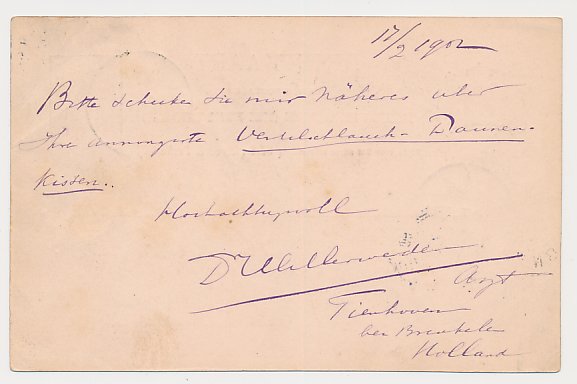 17/2 1902
Bitte schicken Sie mir Näheres über
Ihre annongierte Verschlauch- Daunen-
Kissen.
Hochachtungsvoll
Dr
Arzt
Tienhoven
bei Breukelen
Holland